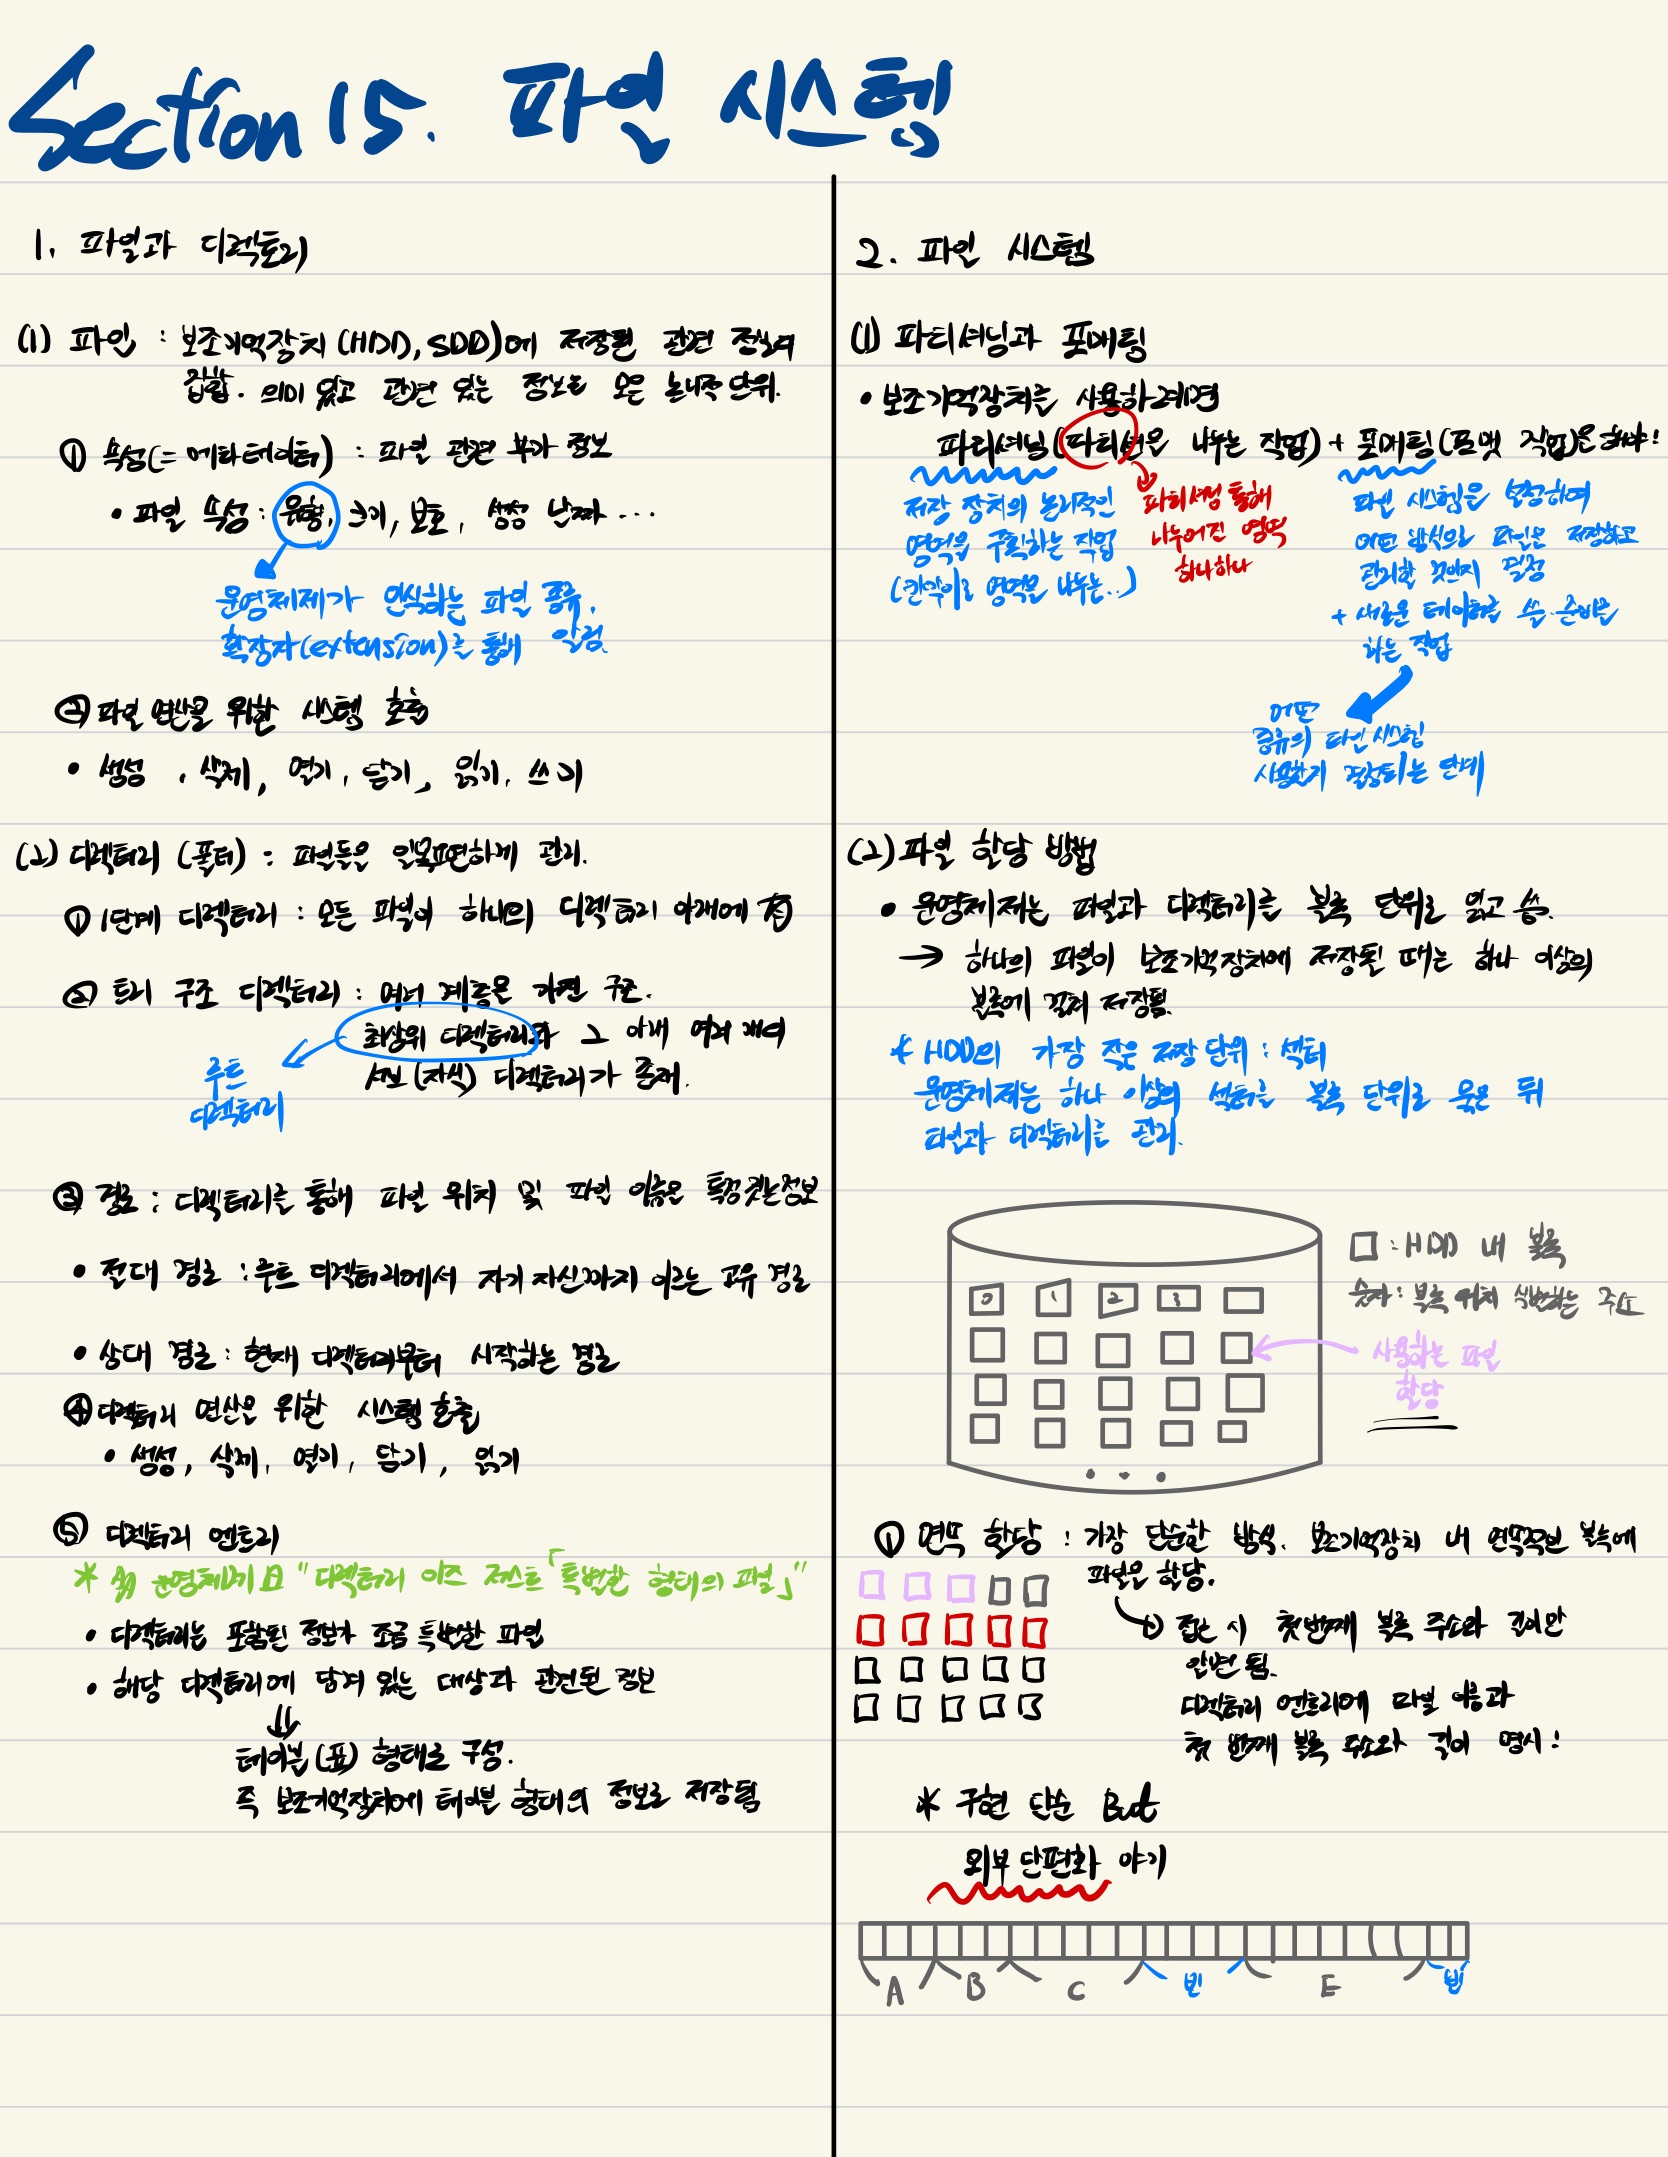 Section 15. 파일 시스템
1. 파일과 디렉토리
(1) 파일 : 보조기억장치(HDD, SDD)에 저장된 관련 정보의
집합. 의미 있고 관련 있는 정보를 모은 논리적 단위.
① 속성(= 메타데이터) : 파일 관련 부가 정보
• 파일 속성 : 유형, 크기, 보호, 생성 날짜 ...
운영체제가 인식하는 파일 종류.
확장자(extension)를 통해 알림
② 파일 연산을 위한 시스템 호출
• 생성, 삭제, 열기, 닫기, 읽기, 쓰기
(2) 디렉터리 (폴더) : 파일들을 일목요연하게 관리.
① 1단계 디렉터리 : 모든 파일이 하나의 디렉터리 아래에 존재
② 트리 구조 디렉터리 : 여러 계층을 가진 구조.
최상위 디렉터리와 그 아래 여러 개의
서브(자식) 디렉터리가 존재.
루트
디렉터리
③ 경로 : 디렉터리를 통해 파일 위치 및 파일 이름을 특정 짓는 정보
• 절대 경로 : 루트 디렉터리에서 자기 자신까지 이르는 고유 경로
• 상대 경로 : 현재 디렉터리부터 시작하는 경로
④ 디렉터리 연산을 위한 시스템 호출
• 생성, 삭제, 열기, 닫기, 읽기
⑤ 디렉터리 엔트리
* 많은 운영체제 "디렉터리 이즈 저스트 「특별한 형태의 파일」"
• 디렉터리는 포함된 정보가 조금 특별한 파일
• 해당 디렉터리에 담겨 있는 대상과 관련된 정보
⇓
테이블(표) 형태로 구성.
즉 보조기억장치에 테이블 형태의 정보로 저장됨
2. 파일 시스템
(1) 파티셔닝과 포매팅
• 보조기억장치를 사용하려면
파티셔닝(파티션을 나누는 작업) + 포매팅(포맷 작업)을 해야!
저장 장치의 논리적인
영역을 구획하는 작업
(칸막이로 영역을 나누는..)
파티셔닝 통해
나누어진 영역
하나하나
파일 시스템을 설정하여
어떤 방식으로 파일을 저장하고
관리할 것인지 결정
+ 새로운 데이터를 쓸 준비를
하는 작업
어떤
종류의 파일 시스템
사용할지 결정되는 단계
(2) 파일 할당 방법
• 운영체제는 파일과 디렉터리를 블록 단위로 읽고 씀.
→ 하나의 파일이 보조기억장치에 저장될 때는 하나 이상의
블록에 걸쳐 저장됨.
* HDD의 가장 작은 저장 단위 : 섹터
운영체제는 하나 이상의 섹터를 블록 단위로 묶은 뒤
파일과 디렉터리를 관리.
0 1 2 3
□ : HDD 내 블록
숫자 : 블록 위치 식별하는 주소
사용하는 파일
할당
① 연속 할당 : 가장 단순한 방식. 보조기억장치 내 연속적인 블록에
파일을 할당.
접근 시 첫 번째 블록 주소와 길이만
알면 됨.
디렉터리 엔트리에 파일 이름과
첫 번째 블록 주소와 길이 명시!
* 구현 단순 But
외부 단편화 야기
A B C 빈 E 빈